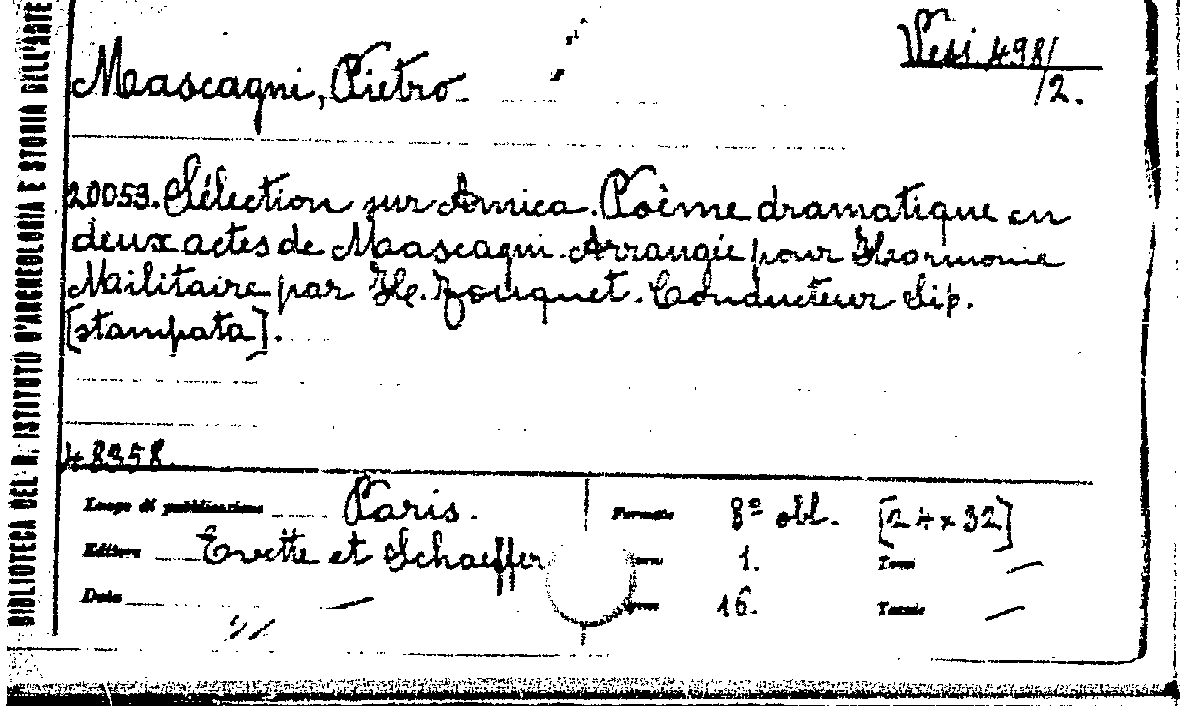 BIBLIOTECA DEL R. ISTITUTO D'ARCHEOLOGIA E STORIA DELL'ARTE
Vessi 498/
/2.
Mascagni, Pietro
20053. Sélection sur Amica. Poème dramatique en
deux actes de Mascagni. Arrangée pour Harmonie
Militaire par H. Fouquet. Conducteur Sip.
[stampata].
48358.
Luogo di pubblicazione Paris. Formato 8º obl. [24x32]
Editore Evette et Schaeffer 1. Tomi —
Data — 16. Tavole —